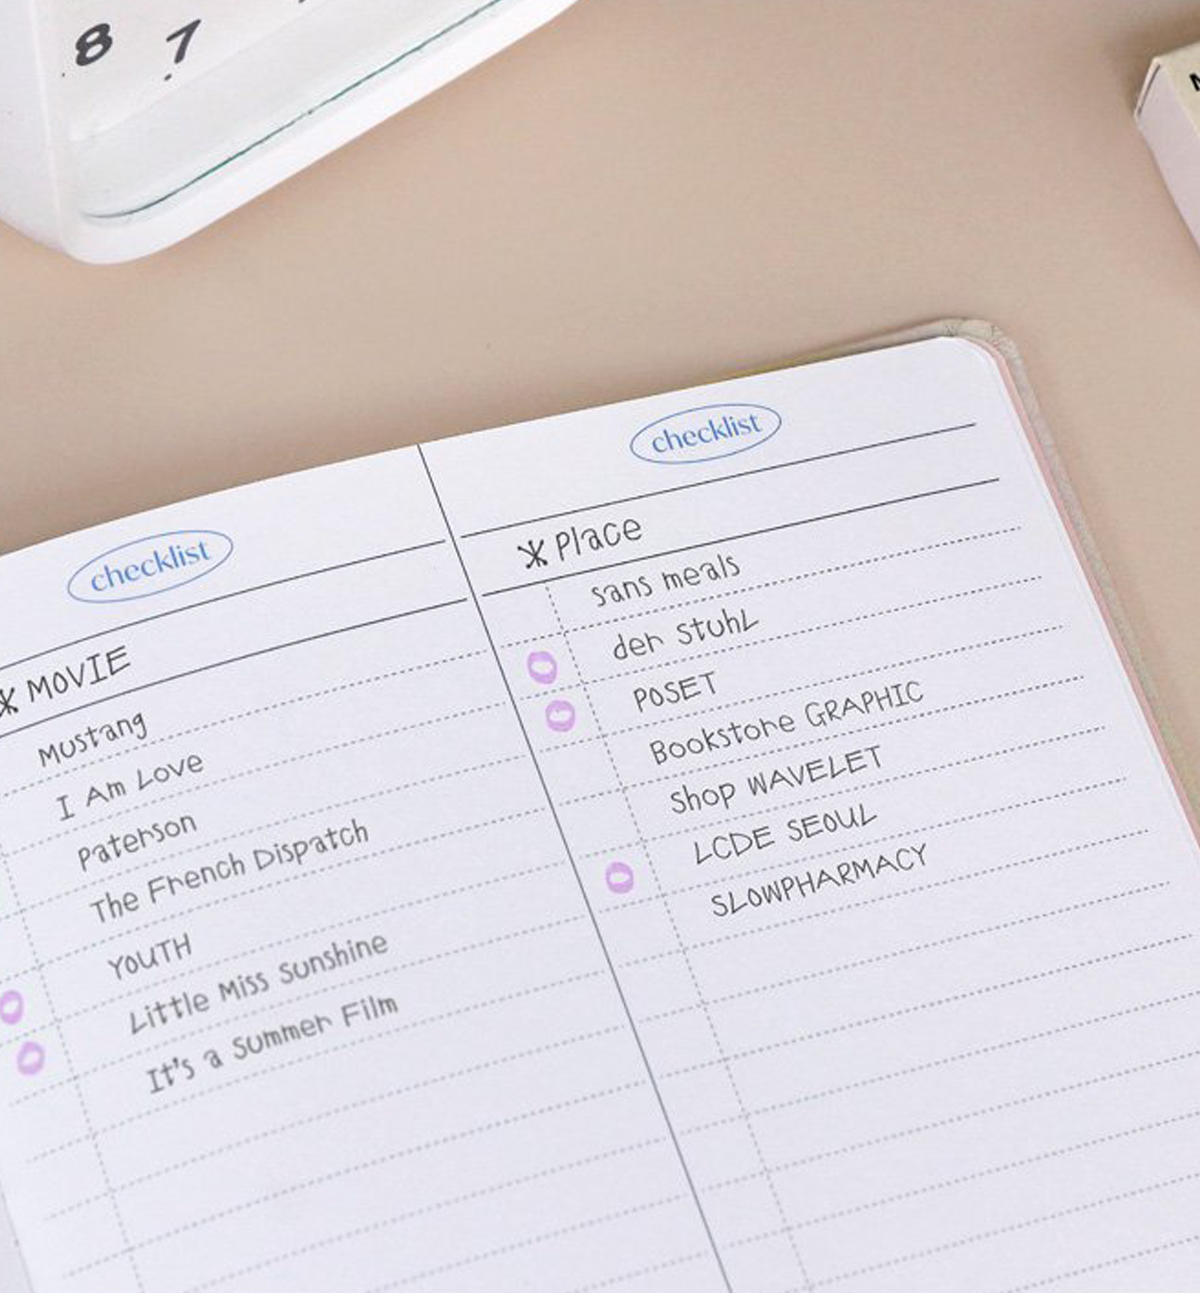 8 7
checklist
* MOVIE
Mustang
I Am Love
Paterson
The French Dispatch
YOUTH
Little Miss Sunshine
It's a Summer Film
checklist
* Place
sans meals
der Stuhl
POSET
Bookstore GRAPHIC
Shop WAVELET
LCDE SEOUL
SLOWPHARMACY